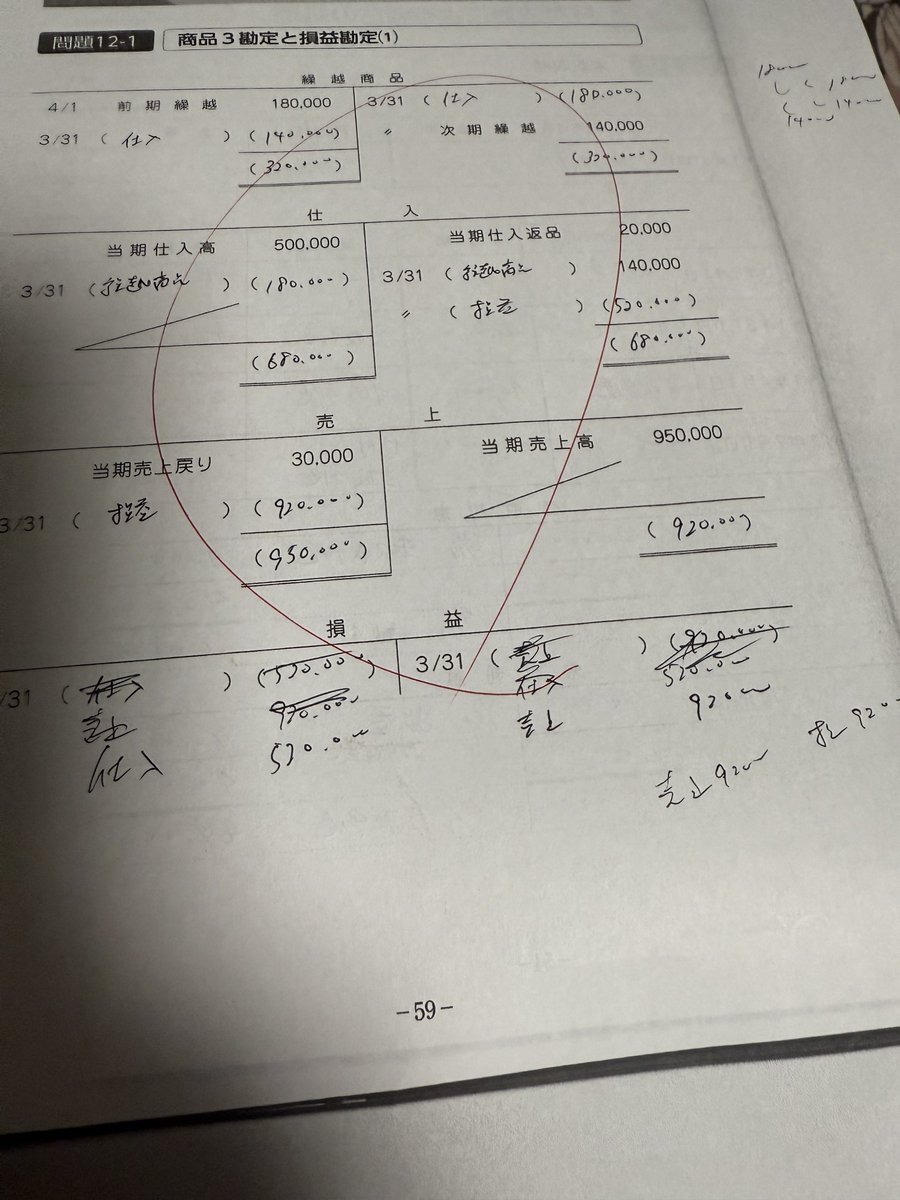 問題12-1 商品3勘定と損益勘定(1)
繰越商品
4/1 前期繰越 180,000 3/31 ( 仕入 ) (180.000)
3/31 ( 仕入 ) (140.000) 〃 次期繰越 140,000
(320.000) (320.000)
仕 入
当期仕入高 500,000 当期仕入返品 20,000
3/31 (繰越商品 ) (180.000) 3/31 (繰越商品 ) 140,000
〃 ( 損益 ) (520.000)
(680.000) (680.000)
売 上
当期売上戻り 30,000 当期売上高 950,000
3/31 ( 損益 ) (920.000)
(950.000) (920.00)
損 益
/31 ( 仕入 ) (520.000) 3/31 ( ) 520.00
売上 920.000 仕入
仕入 520.00 売上 920
売上920 損920
-59-